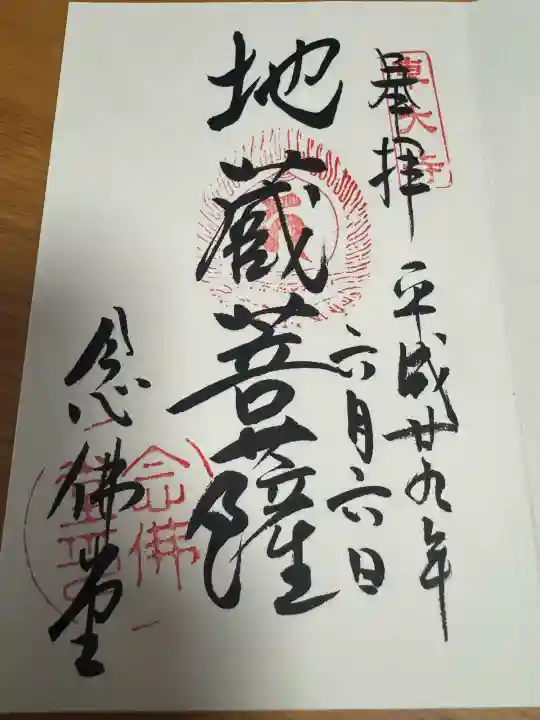 奉拝
東大寺
平成廿九年
六月六日
地蔵菩薩
念佛堂
念佛